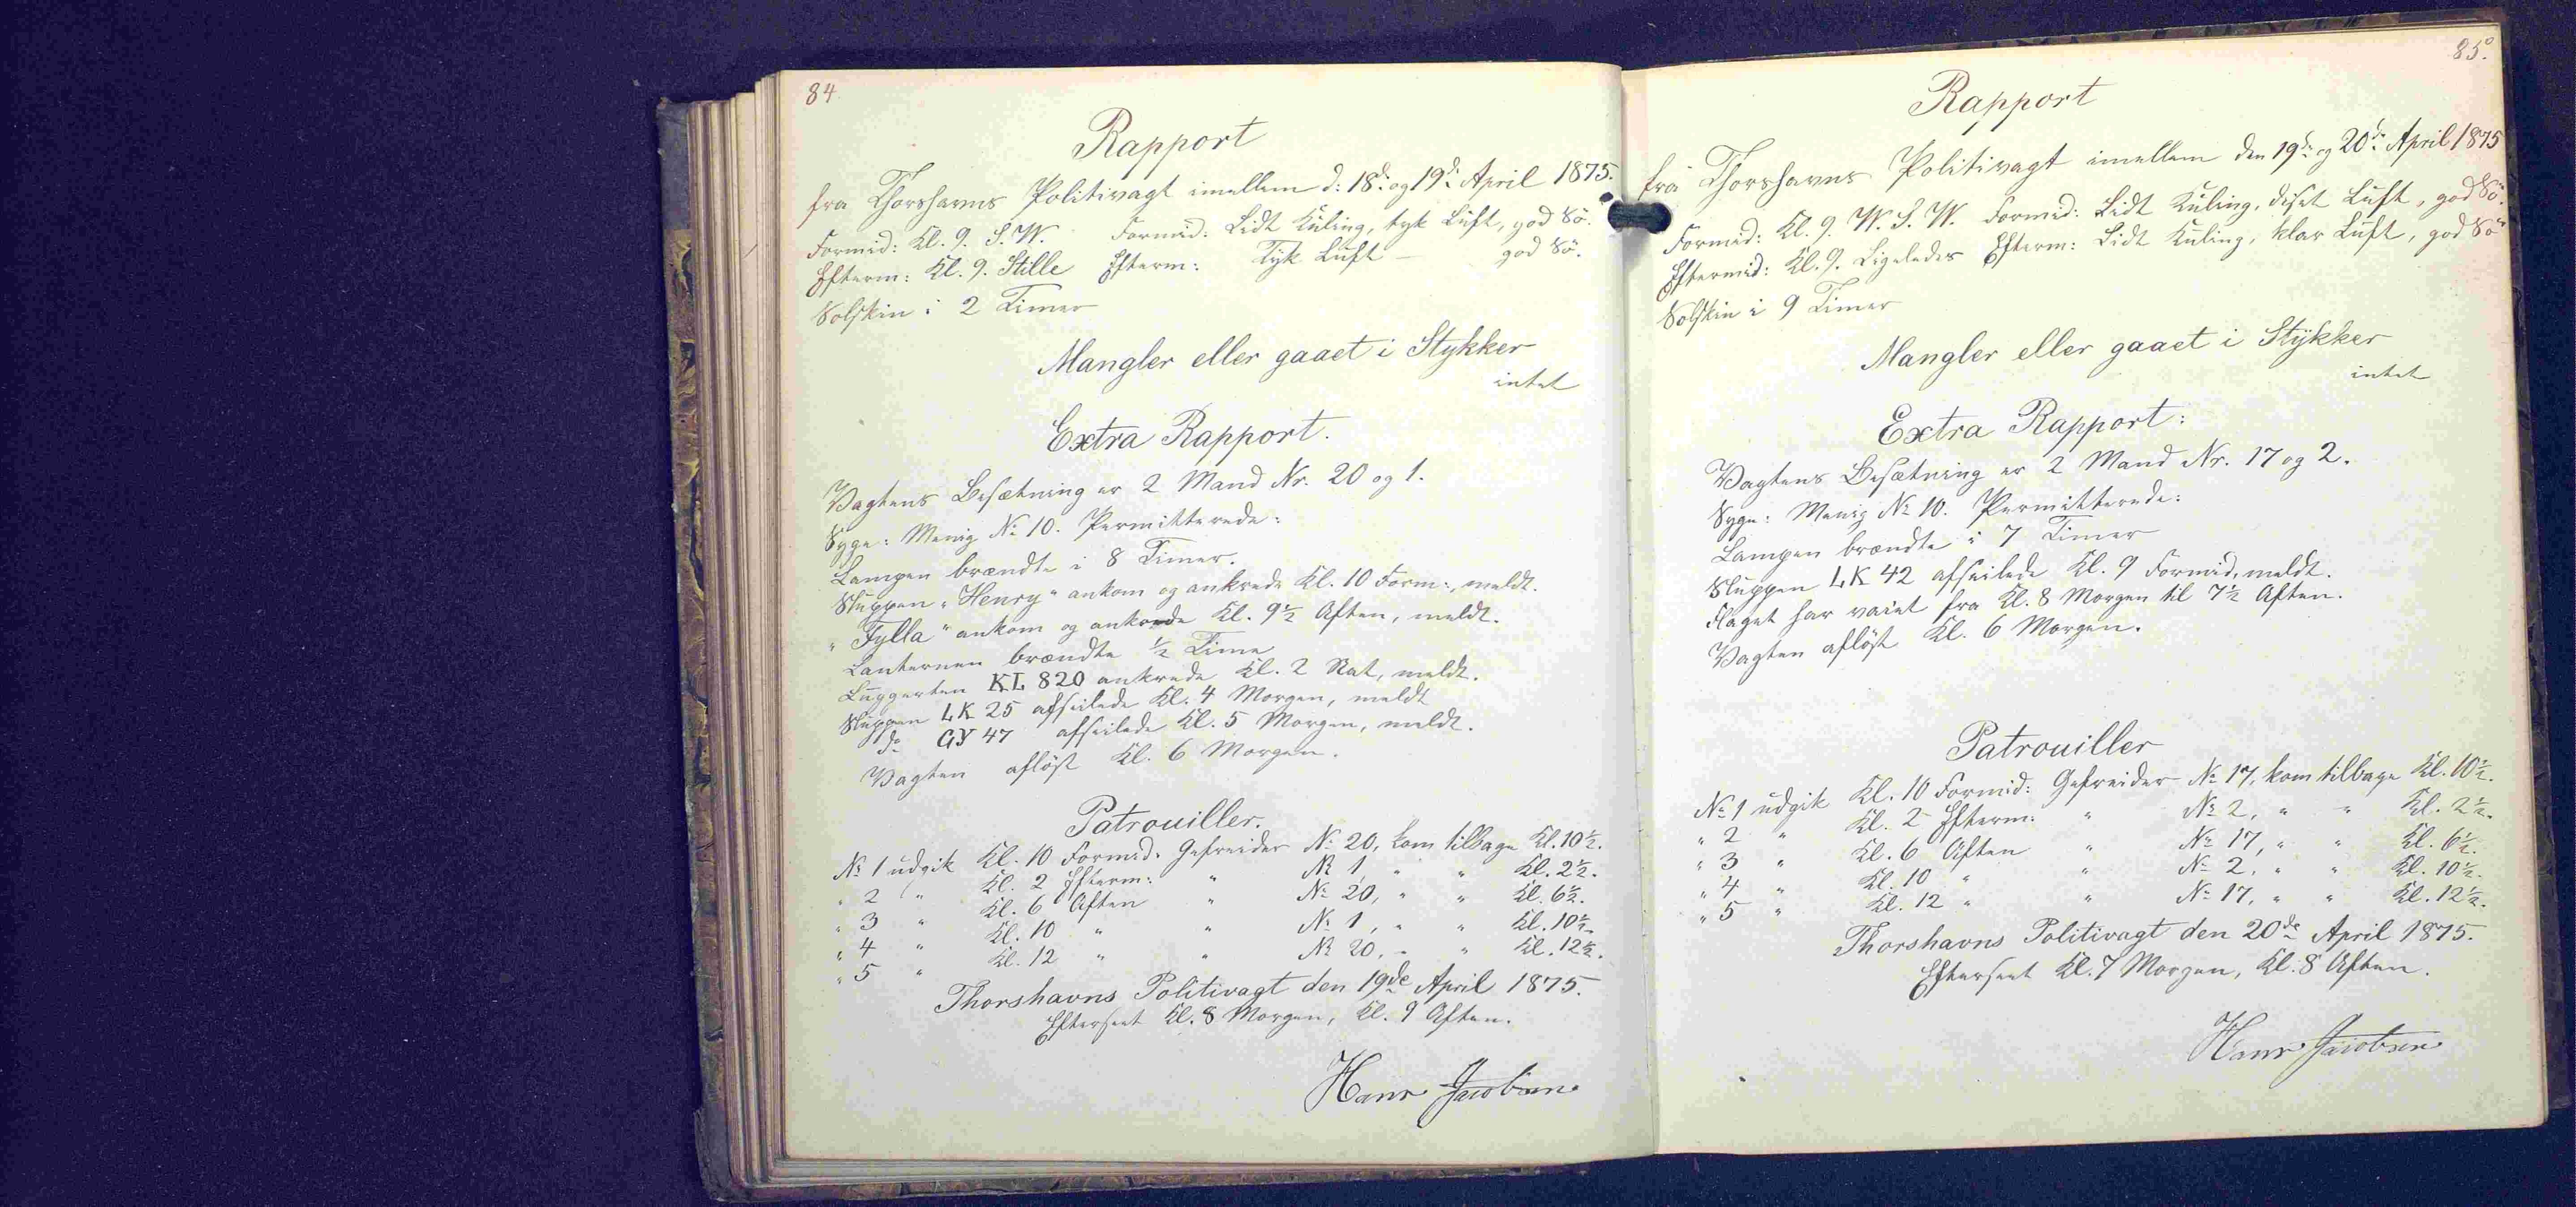 84
Rapport
fra Thorshavns Politivagt imellem d: 18de og 19de April 1875.
Formid: Kl. 9. S. W. Formid: Lidt Kuling, tyk Luft, god Sö.
Efterm: Kl. 9. Stille Efterm: Tyk Luft — god Sö.
Solskin i 2 Timer
Mangler eller gaaet i Stykker
intet
Extra Rapport.
Vagtens Besætning er 2 Mand Nr. 20 og 1.
Syge: Menig No 10. Permitterede:
Lampen brændte i 8 Timer.
Sluppen "Henry" ankom og ankrede Kl. 10 Form:, meldt.
"Fylla" ankom og ankrede Kl. 9½ Aften, meldt.
Lanternen brændte ½ Time
Luggerten KL 820 ankrede Kl. 2 Nat, meldt.
Sluppen LK 25 afseilede Kl. 4 Morgen, meldt
do GY 47 afseilede Kl. 5 Morgen, meldt.
Vagten aflöst Kl. 6 Morgen.
Patrouiller.
No 1 udgik Kl. 10 Formid. Gefreider No 20, kom tilbage Kl. 10½.
" 2 " Kl. 2 Efterm: " No 1, " " Kl. 2½.
" 3 " Kl. 6 Aften " No 20, " " Kl. 6½.
" 4 " Kl. 10 " " No 1, " " Kl. 10½.
" 5 " Kl. 12 " " No 20, " " Kl. 12½.
Thorshavns Politivagt den 19de April 1875.
Efterseet Kl. 8 Morgen, Kl. 9 Aften.
Hans Jacobsen
85.
Rapport
fra Thorshavns Politivagt imellem den 19de og 20de April 1875
Formid: Kl. 9. W. S. W. Formid: Lidt Kuling, diset Luft, god Sö.
Eftermid: Kl. 9. Ligeledes Efterm: Lidt Kuling, klar Luft, god Sö
Solskin i 9 Timer
Mangler eller gaaet i Stykker
intet
Extra Rapport:
Vagtens Besætning er 2 Mand Nr. 17 og 2.
Syge: Menig No 10. Permitterede:
Lampen brændte i 7 Timer
Sluppen LK 42 afseilede Kl. 9 Formid, meldt.
Flaget har vaiet fra Kl. 8 Morgen til 7½ Aften.
Vagten aflöst Kl. 6 Morgen.
Patrouiller
No 1 udgik Kl. 10 Formid: Gefreider No 17, kom tilbage Kl. 10½.
" 2 " Kl. 2 Efterm: " No 2, " " Kl. 2½.
" 3 " Kl. 6 Aften " No 17, " " Kl. 6½.
" 4 " Kl. 10 " " No 2, " " Kl. 10½.
" 5 " Kl. 12 " " No 17, " " Kl. 12½.
Thorshavns Politivagt den 20de April 1875.
Efterseet Kl. 7 Morgen, Kl. 8 Aften.
Hans Jacobsen